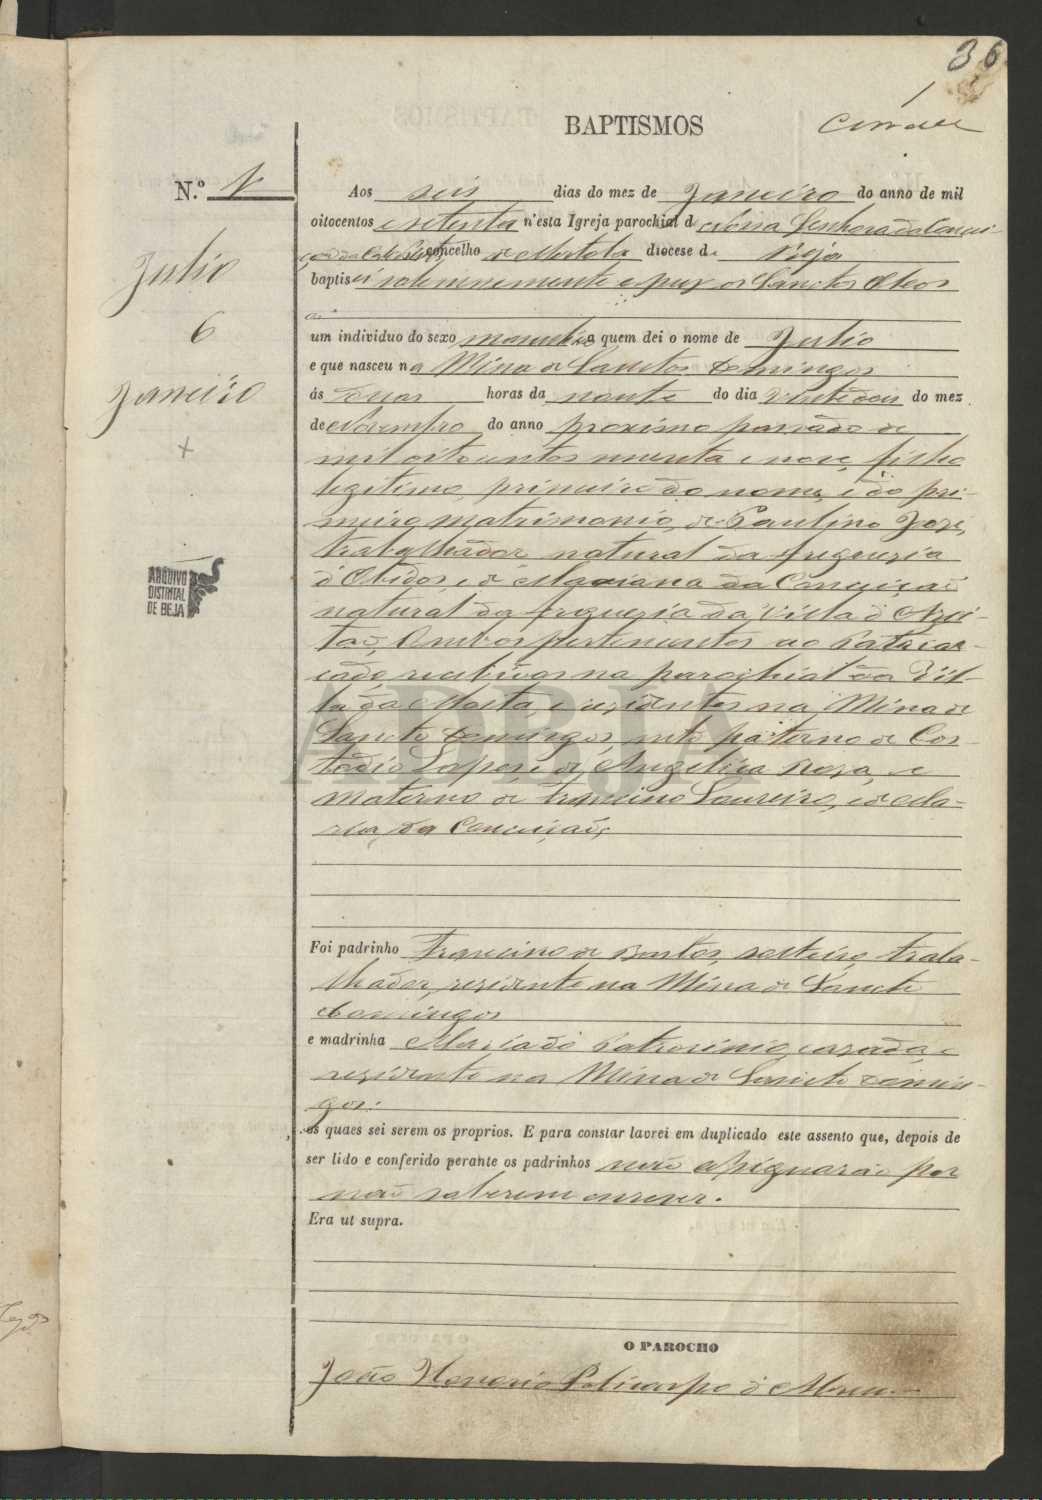 36
BAPTISMOS
N.º 1
Aos seis dias do mez de Janeiro do anno de mil
oitocentos e setenta n'esta Igreja parochial d Nossa Senhora da Concei-
ção concelho de Mertola diocese de Beja
baptisei solemnemente e puz os Sanctos Oleos
a
um individuo do sexo masculino a quem dei o nome de Julio
e que nasceu na Mina de Sancto Domingos
ás duas horas da noute do dia vinte dois do mez
de Novembro do anno proximo passado de
mil oitocentos sessenta e nove, filho
legitimo, primeiro do nome, e do pri-
meiro matrimonio, de Paulino José,
trabalhador natural da freguezia
d'Obidos, e de Marianna da Conceição
natural da freguezia da Villa d'Azei-
tão, Ambos pertencentes ao Patriar-
cado, recebidos na parochial da Vil-
la da e residentes na Mina de
Sancto Domingos, neto paterno de Cos-
todio e de Angelica Rosa, e
materno de Francisco Loureiro, e de Ma-
ria da Conceição,
Foi padrinho Francisco de solteiro, traba-
lhador, residente na Mina de Sancto
Domingos
e madrinha Maria do Patrocinio, casada, e
residente na Mina de Sancto Domin-
gos.
os quaes sei serem os proprios. E para constar lavrei em duplicado este assento que, depois de
ser lido e conferido perante os padrinhos não assignarão por
não saberem escrever.
Era ut supra.
O PAROCHO
João Policarpo
Julio
6
Janeiro
+
ARQUIVO
DISTRITAL
DE BEJA
ADBJA